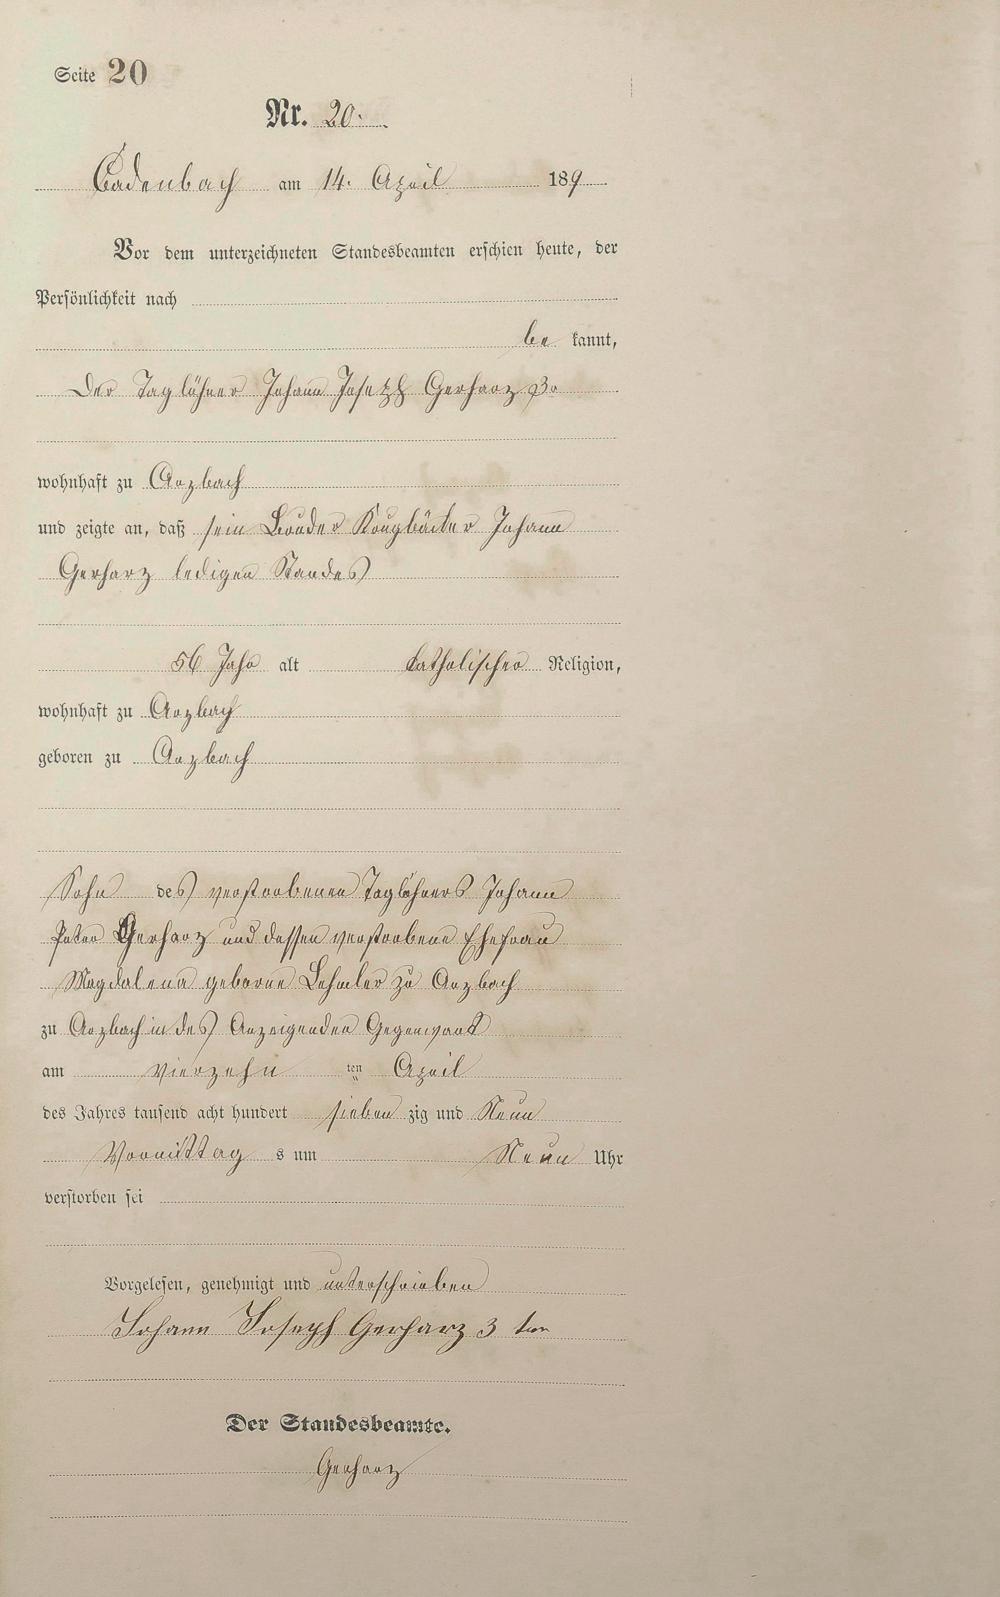 Seite 20
Nr. 20.
Cadenbach am 14. April 189
Vor dem unterzeichneten Standesbeamten erschien heute, der
Persönlichkeit nach
be kannt,
der Taglöhner Johann Joseph Gerharz 3r
wohnhaft zu Arzbach
und zeigte an, daß sein Bruder Krugbäcker Johann
Gerharz ledigen Standes
56 Jahr alt katholischer Religion,
wohnhaft zu Arzbach
geboren zu Arzbach
Sohn des verstorbenen Taglöhners Johann
Peter Gerharz und dessen verstorbene Ehefrau
Magdalena geborne Lehmler zu Arzbach
zu Arzbach in des Anzeigenden Gegenwart
am vierzehn ten April
des Jahres tausend acht hundert sieben zig und Neun
Vormittag s um Neun Uhr
verstorben sei
Vorgelesen, genehmigt und unterschrieben
Johann Joseph Gerharz 3 ter
Der Standesbeamte.
Gerharz